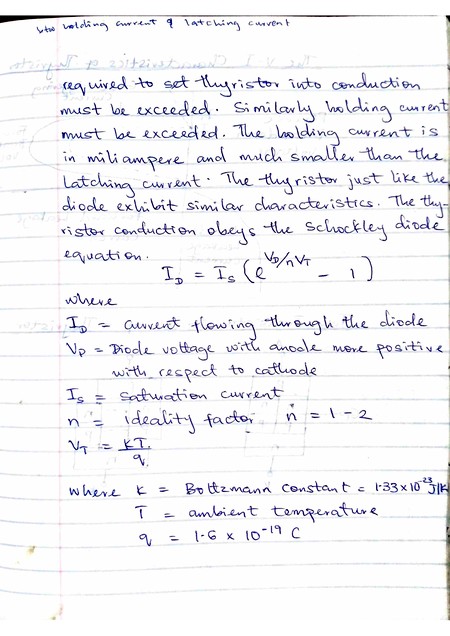 btw holding current & latching current
required to set thyristor into conduction
must be exceeded. Similarly holding current
must be exceeded. The holding current is
in miliampere and much smaller than the
Latching current. The thyristor just like the
diode exhibit similar characteristics. The thy-
ristor conduction obeys the Schockley diode
equation.
I_D = I_S (e^{V_D/nV_T} - 1)
where
I_D = current flowing through the diode
V_D = Diode voltage with anode more positive
with respect to cathode
I_S = saturation current
n = ideality factor n = 1 - 2
V_T = KT/q
where K = Boltzmann constant = 1.33 x 10^{-23} J/K
T = ambient temperature
q = 1.6 x 10^{-19} C